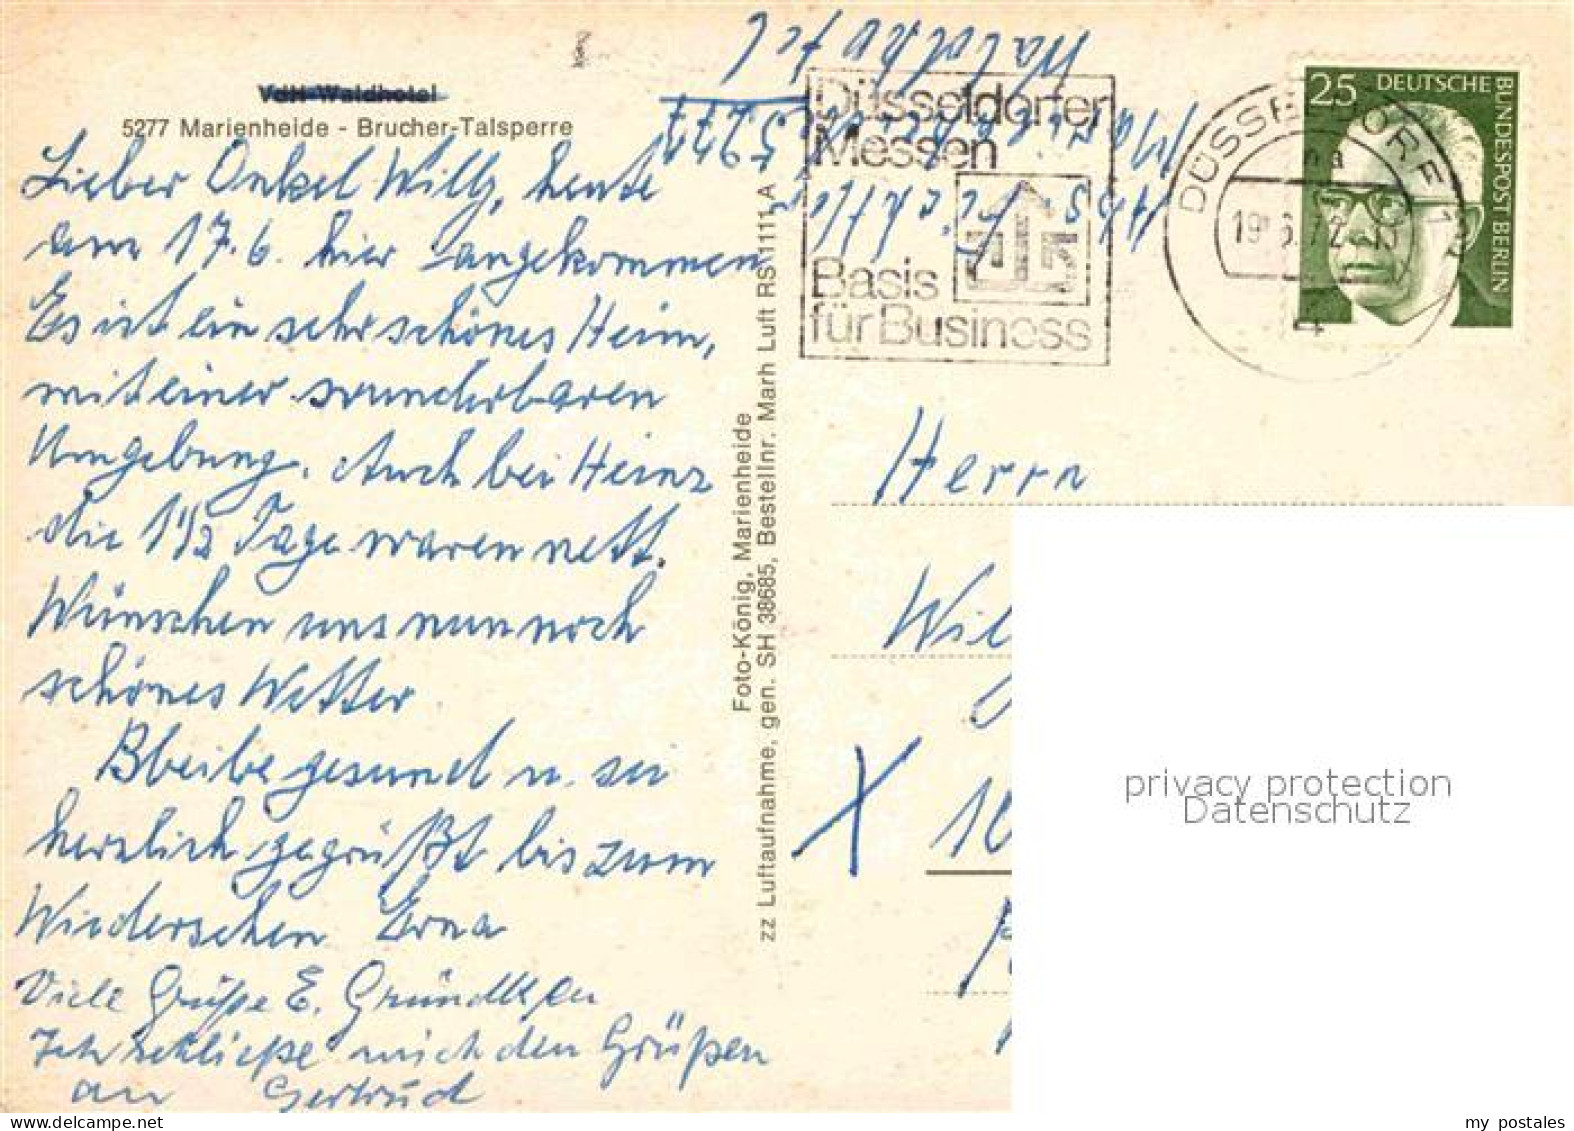 VdH-Waldhotel
5277 Marienheide - Brucher-Talsperre
Lieber Onkel Willy, heute
am 17.6. hier angekommen
Es ist ein sehr schönes Heim,
mit einer wunderbaren
Umgebung. Auch bei Heinz
die 1 1/2 Tage waren nett.
Wünschen uns nun noch
schönes Wetter
Bleibe gesund u. sei
herzlich gegrüßt bis zum
Wiedersehen Erna
Viele Grüße E.
Ich schließe mich den Grüßen
an Gertrud
Foto-König, Marienheide
zz Luftaufnahme, gen. SH 38685, Bestellnr. Marh Luft RS 1111 A
Abs.
Marienheide 5277
Waldhotel
Düsseldorfer
Messen
Basis
für Business
DÜSSELDORF 1
19.6.72
25 DEUTSCHE
BUNDESPOST BERLIN
Herrn
Wil
X 10
privacy protection
Datenschutz
my postales